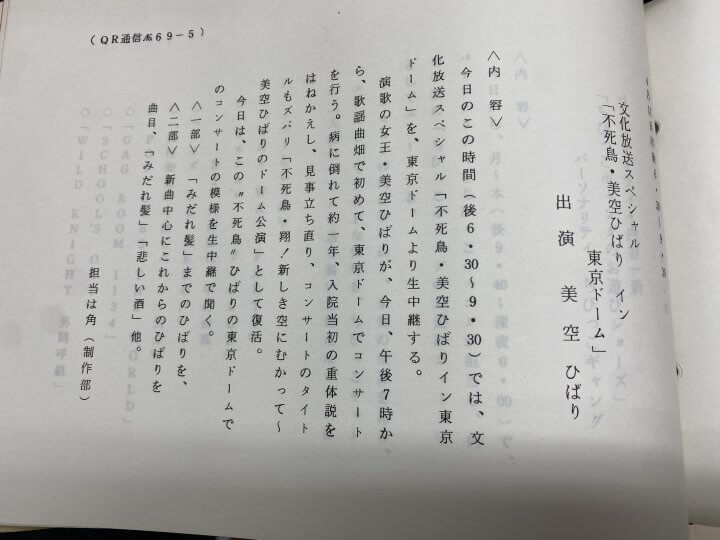 文化放送スペシャル
「不死鳥・美空ひばり イン
東京ドーム」
出演 美空 ひばり
＜内容＞
今日のこの時間（後6・30〜9・30）では、文
化放送スペシャル「不死鳥・美空ひばりイン東京
ドーム」を、東京ドームより生中継する。
演歌の女王・美空ひばりが、今日、午後7時か
ら、歌謡曲畑で初めて、東京ドームでコンサート
を行う。病に倒れて約一年、入院当初の重体説を
はねかえし、見事立ち直り、コンサートのタイト
ルもズバリ「不死鳥・翔！新しき空にむかって〜
美空ひばりのドーム公演」として復活。
今日は、この〝不死鳥〟ひばりの東京ドームで
のコンサートの模様を生中継で聞く。
＜一部＞「みだれ髪」までのひばりを、
＜二部＞ 新曲中心にこれからのひばりを
曲目、「みだれ髪」「悲しい酒」他。
担当は角（制作部）
（QR通信№69−5）